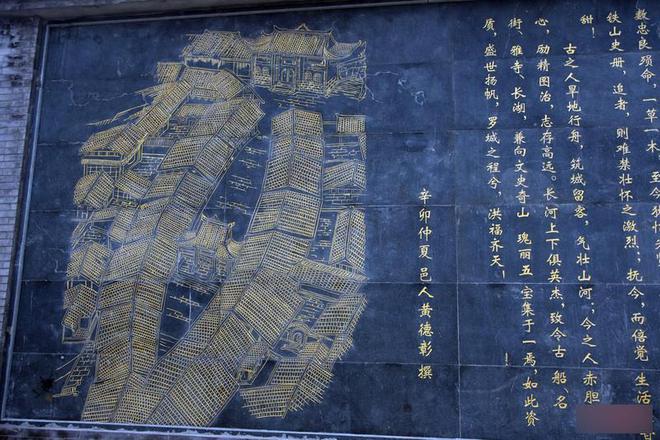 数忠良殒命，一草一木，至今犹怀
铁山史册，追者，则难禁壮怀之激烈；抚今，而倍觉生活甘
甜！
古之人旱地行舟，筑城留客，气壮山河；今之人赤胆
心，励精图治，志存高远。长河上下俱英杰，致令古船、名
街、雅寺、长湖，兼向文史奇山瑰丽五宝集于一焉，如此资
质，盛世扬帆，罗城之程兮，洪福齐天！
辛卯仲夏 邑人黄德彰 撰